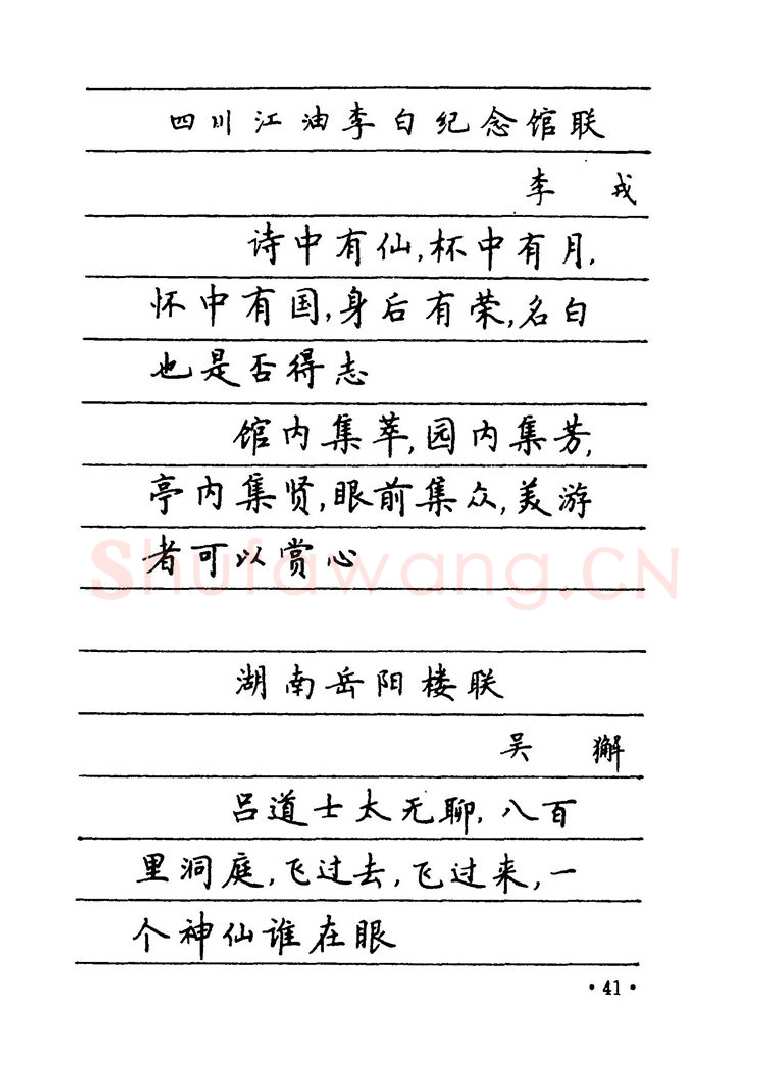 四川江油李白纪念馆联
李 戎
诗中有仙,杯中有月,
怀中有国,身后有荣,名白
也是否得志
馆内集萃,园内集芳,
亭内集贤,眼前集众,美游
者可以赏心
湖南岳阳楼联
吴 獬
吕道士太无聊,八百
里洞庭,飞过去,飞过来,一
个神仙谁在眼
·41·
Shufawang.CN